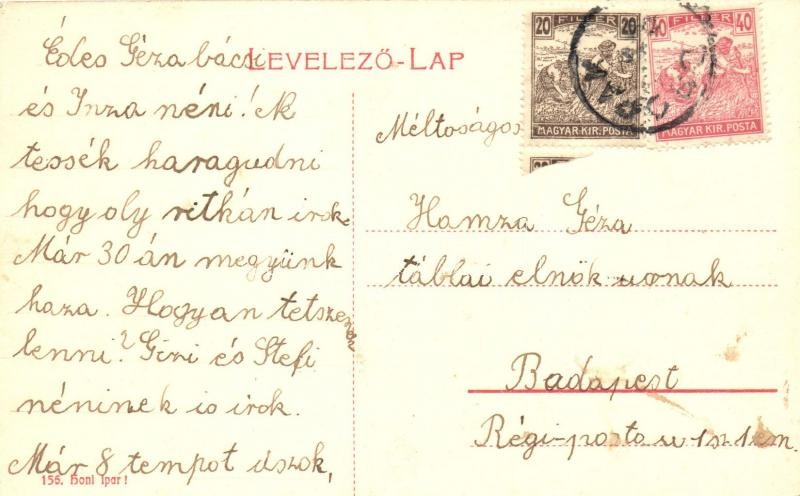 LEVELEZŐ-LAP
Édes Géza bácsi
és Inza néni! Ne
tessék haragudni
hogy oly ritkán irok.
Már 30 án megyünk
haza. Hogyan tetszenek
lenni? Gizi és Stefi
néninek is irok.
Már 8 tempot úszok,
156. Honi ipar!
20 FILLÉR 20
MAGYAR KIR. POSTA
40 FILLÉR 40
MAGYAR KIR. POSTA
Méltóságos
Hamza Géza
táblai elnök urnak
Budapest
Régi-posta u 1 sz 1 em.